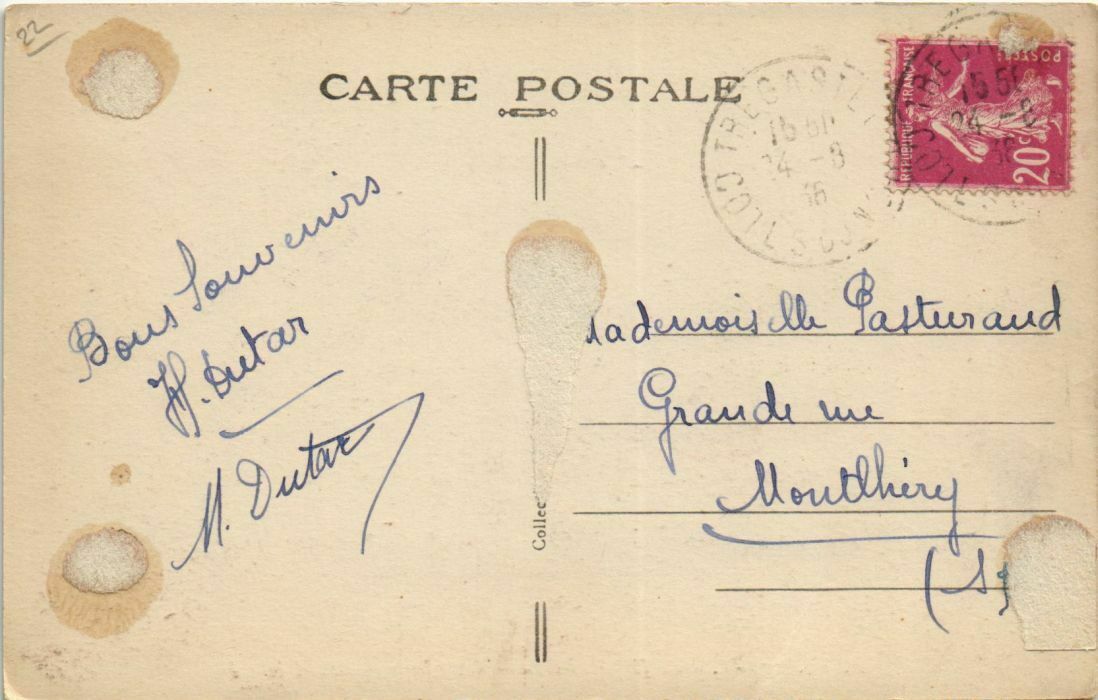 22
CARTE POSTALE
TREGASTEL
15 50
24 -8
36
CÔTES DU NORD
REPUBLIQUE FRANÇAISE
POSTES
20c
Bons Souvenirs
H. Dutar
M. Dutar
ademoiselle Pasturaud
Grande rue
Montlhéry
(S
Collec